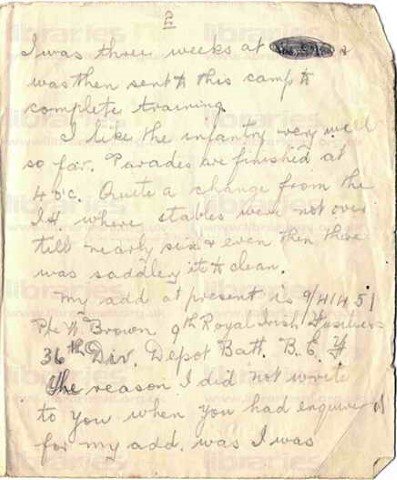 2
I was three weeks at &
was then sent to this camp to
complete training.
I like the infantry very well
so far. Parades are finished at
4 o'c. Quite a change from the
I.H. where stables were not over
till nearly six & even then there
was saddlery etc to clean.
My add at present is 9/41451
Pte W Brown 9th Royal Irish Fusiliers
36th Div. Depot Batt. B.E.F
The reason I did not write
to you when you had enquired
for my add. was I was